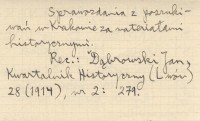 Sprawozdania z poszuki-
wań w Krakowie za materiałami
historycznymi.
Rec.: Dąbrowski Jan,
Kwartalnik Historyczny (Lwów)
28 (1914), nr 2: 279.